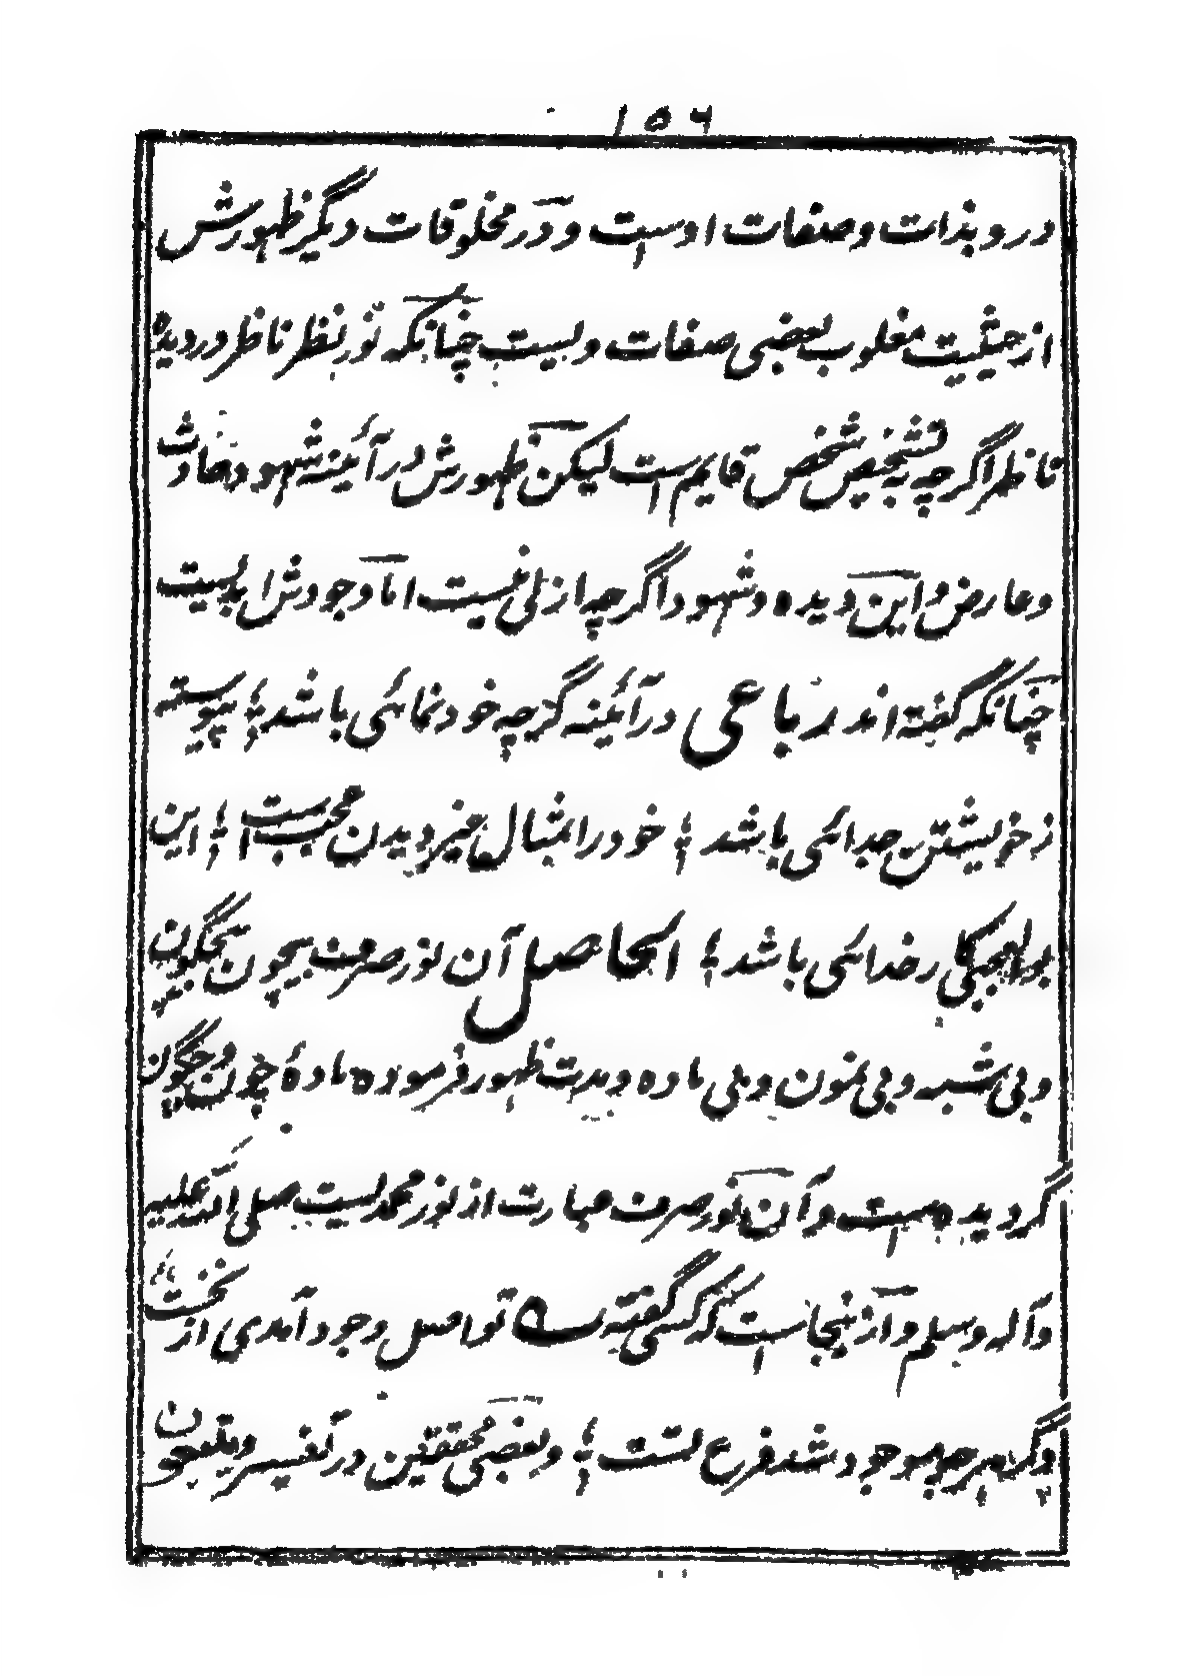 ۱۵۶
در و بذات و صفات اوست و در مخلوقات دیگر ظهورش
از حیثیت مغلوب بعضی صفات ولیست چنانکه نور بنظر ناظر در دیده
ناظر اگرچه به تشخیص شخص قایم است لیکن ظهورش در آئینه شهود حادث
و عارض و این دیده و شهود اگرچه ازلی نیست اما وجودش ابدیست
چنانکه گفته اند رباعی در آئینه گرچه خود نمائی باشد ؛ پیوسته
ز خویشتن جدائی باشد ؛ خود را بمثال غیر دیدن عجب است ؛ این
بوالعجبی کار خدائی باشد ؛ الحاصل آن نور صرف بیچون بیچگون
و بی شبه و بی نمون و بی ماده و مدت ظهور فرموده مادهٔ چون و چگون
گردیده است و آن نور صرف عبارت از نور محمدیست صلی الله علیه
و آله و سلم و ازینجاست که کسی گفته تو اصل وجود آمدی از نخست
دگر هرچه موجود شد فرع تست ؛ و بعضی محققین در تفسیر و یتبعون